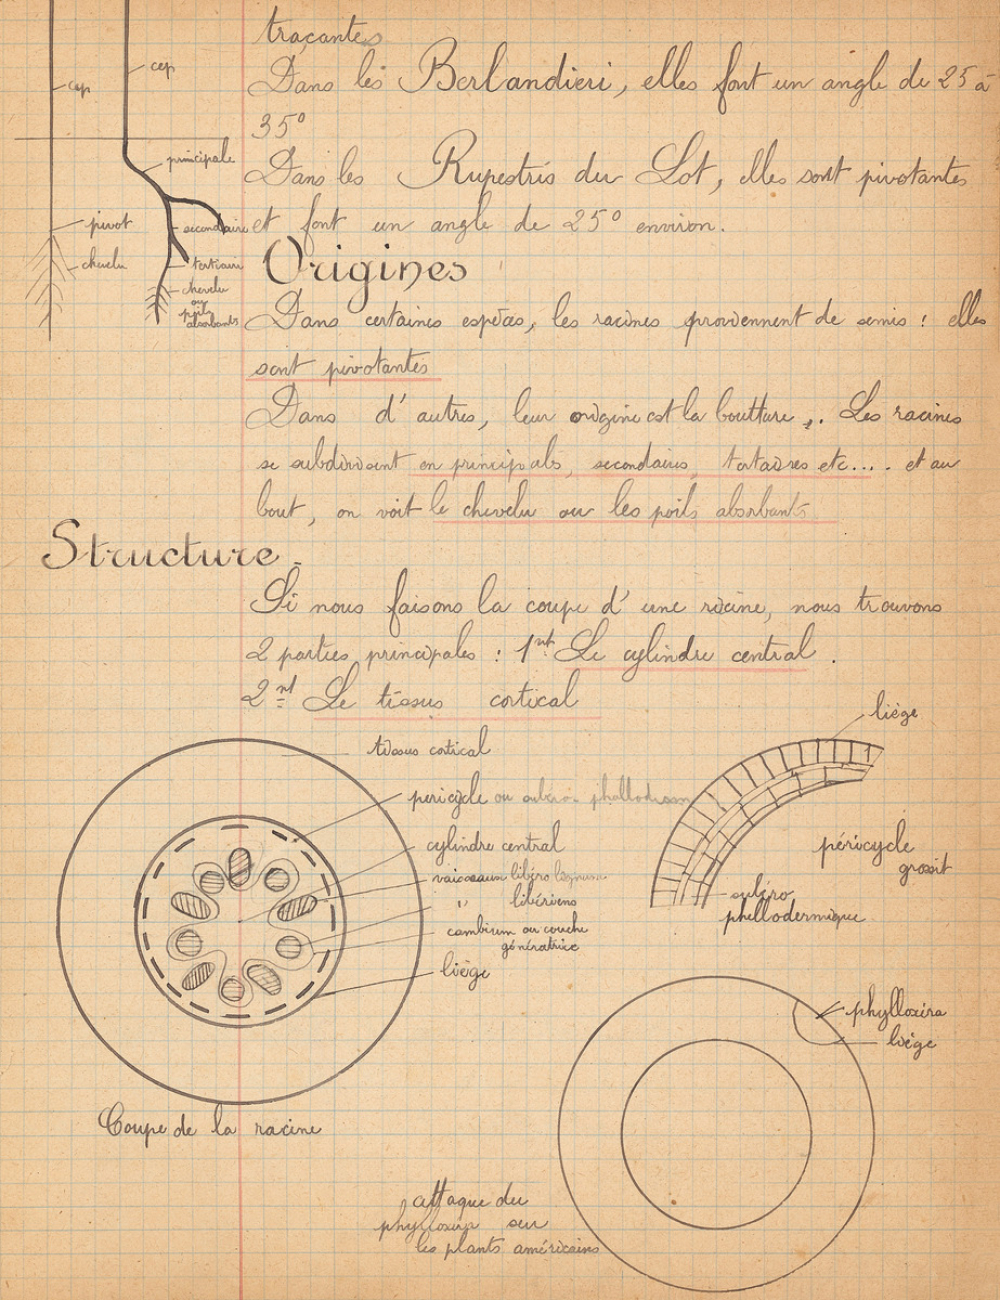 traçantes
Dans les Berlandieri, elles font un angle de 25 à
35°
Dans les Rupestris du Lot, elles sont pivotantes
et font un angle de 25° environ.
cep
cep
principale
pivot
secondaire
chevelu
tertiaire
chevelu
ou
poils
absorbants
Origines
Dans certaines espèces, les racines proviennent de semis : elles
sont pivotantes
Dans d'autres, leur origine est la boutture. Les racines
se subdivisent en principales, secondaires, tertaires etc.... et au
bout, on voit le chevelu ou les poils absorbants
Structure.
Si nous faisons la coupe d'une racine, nous trouvons
2 parties principales : 1nt Le cylindre central.
2nt Le tissus cortical
tissus cortical
pericycle ou subéro phellodermi
cylindre central
vaisseaux libéro ligneux
" libériens
cambium ou couche
génératrice
liège
Coupe de la racine
liège
péricycle
grossit
subéro
phellodermique
phylloxéra
liège
attaque du
phylloxera sur
les plants américains